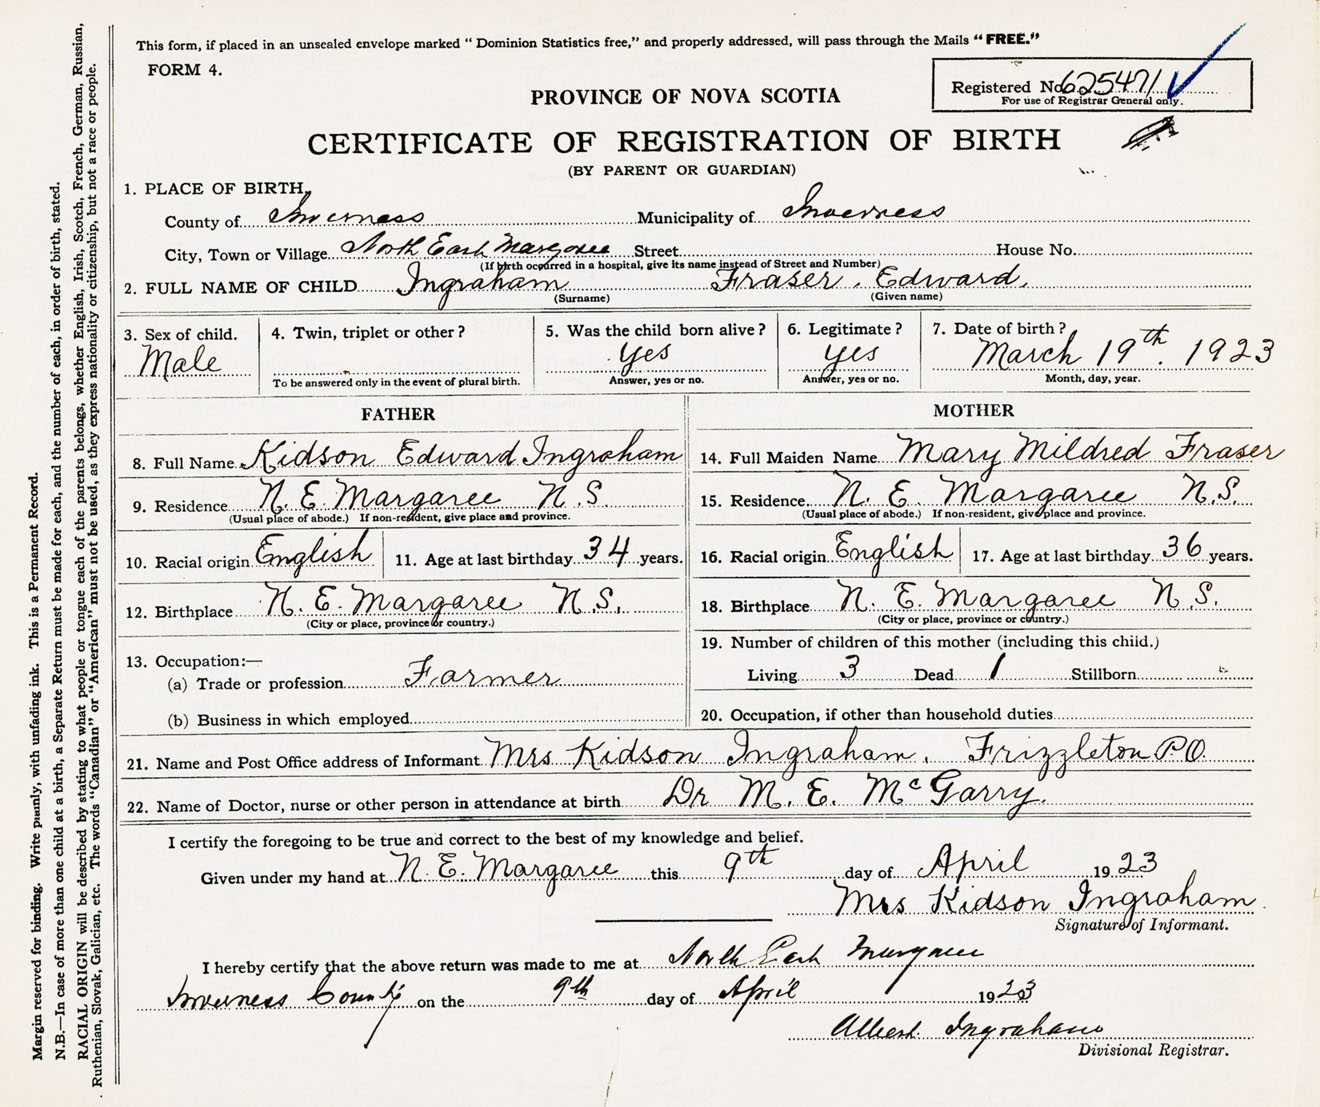 This form, if placed in an unsealed envelope marked “ Dominion Statistics free,” and properly addressed, will pass through the Mails “ FREE.”
FORM 4.
Registered No. 625471
For use of Registrar General only.
PROVINCE OF NOVA SCOTIA
CERTIFICATE OF REGISTRATION OF BIRTH
(BY PARENT OR GUARDIAN)
1. PLACE OF BIRTH,
County of Inverness Municipality of Inverness
City, Town or Village North East Margaree Street House No.
(If birth occurred in a hospital, give its name instead of Street and Number)
2. FULL NAME OF CHILD Ingraham Fraser Edward.
(Surname) (Given name)
3. Sex of child. 4. Twin, triplet or other? 5. Was the child born alive? 6. Legitimate? 7. Date of birth?
Male yes yes March 19th. 1923
To be answered only in the event of plural birth. Answer, yes or no. Answer, yes or no. Month, day, year.
FATHER MOTHER
8. Full Name Kidson Edward Ingraham 14. Full Maiden Name Mary Mildred Fraser
9. Residence N. E. Margaree N.S. 15. Residence N. E. Margaree N.S.
(Usual place of abode.) If non-resident, give place and province. (Usual place of abode.) If non-resident, give place and province.
10. Racial origin English 11. Age at last birthday 34 years. 16. Racial origin English 17. Age at last birthday 36 years.
12. Birthplace N. E. Margaree N.S. 18. Birthplace N. E. Margaree N.S.
(City or place, province or country.) (City or place, province or country.)
19. Number of children of this mother (including this child.)
13. Occupation:—
(a) Trade or profession Farmer Living 3 Dead 1 Stillborn
(b) Business in which employed 20. Occupation, if other than household duties
21. Name and Post Office address of Informant Mrs Kidson Ingraham. Frizzleton P.O.
22. Name of Doctor, nurse or other person in attendance at birth Dr M. E. McGarry.
I certify the foregoing to be true and correct to the best of my knowledge and belief.
Given under my hand at N. E. Margaree this 9th day of April 1923
Mrs Kidson Ingraham.
Signature of Informant.
I hereby certify that the above return was made to me at North East Margaree
Inverness County on the 9th day of April 1923
Albert Ingraham
Divisional Registrar.
Margin reserved for binding. Write plainly, with unfading ink. This is a Permanent Record.
N.B.—In case of more than one child at a birth, a Separate Return must be made for each, and the number of each, in order of birth, stated.
RACIAL ORIGIN will be described by stating to what people or tongue each of the parents belongs, whether English, Irish, Scotch, French, German, Russian,
Ruthenian, Slovak, Galician, etc. The words “Canadian” or “American” must not be used, as they express nationality or citizenship, but not a race or people.